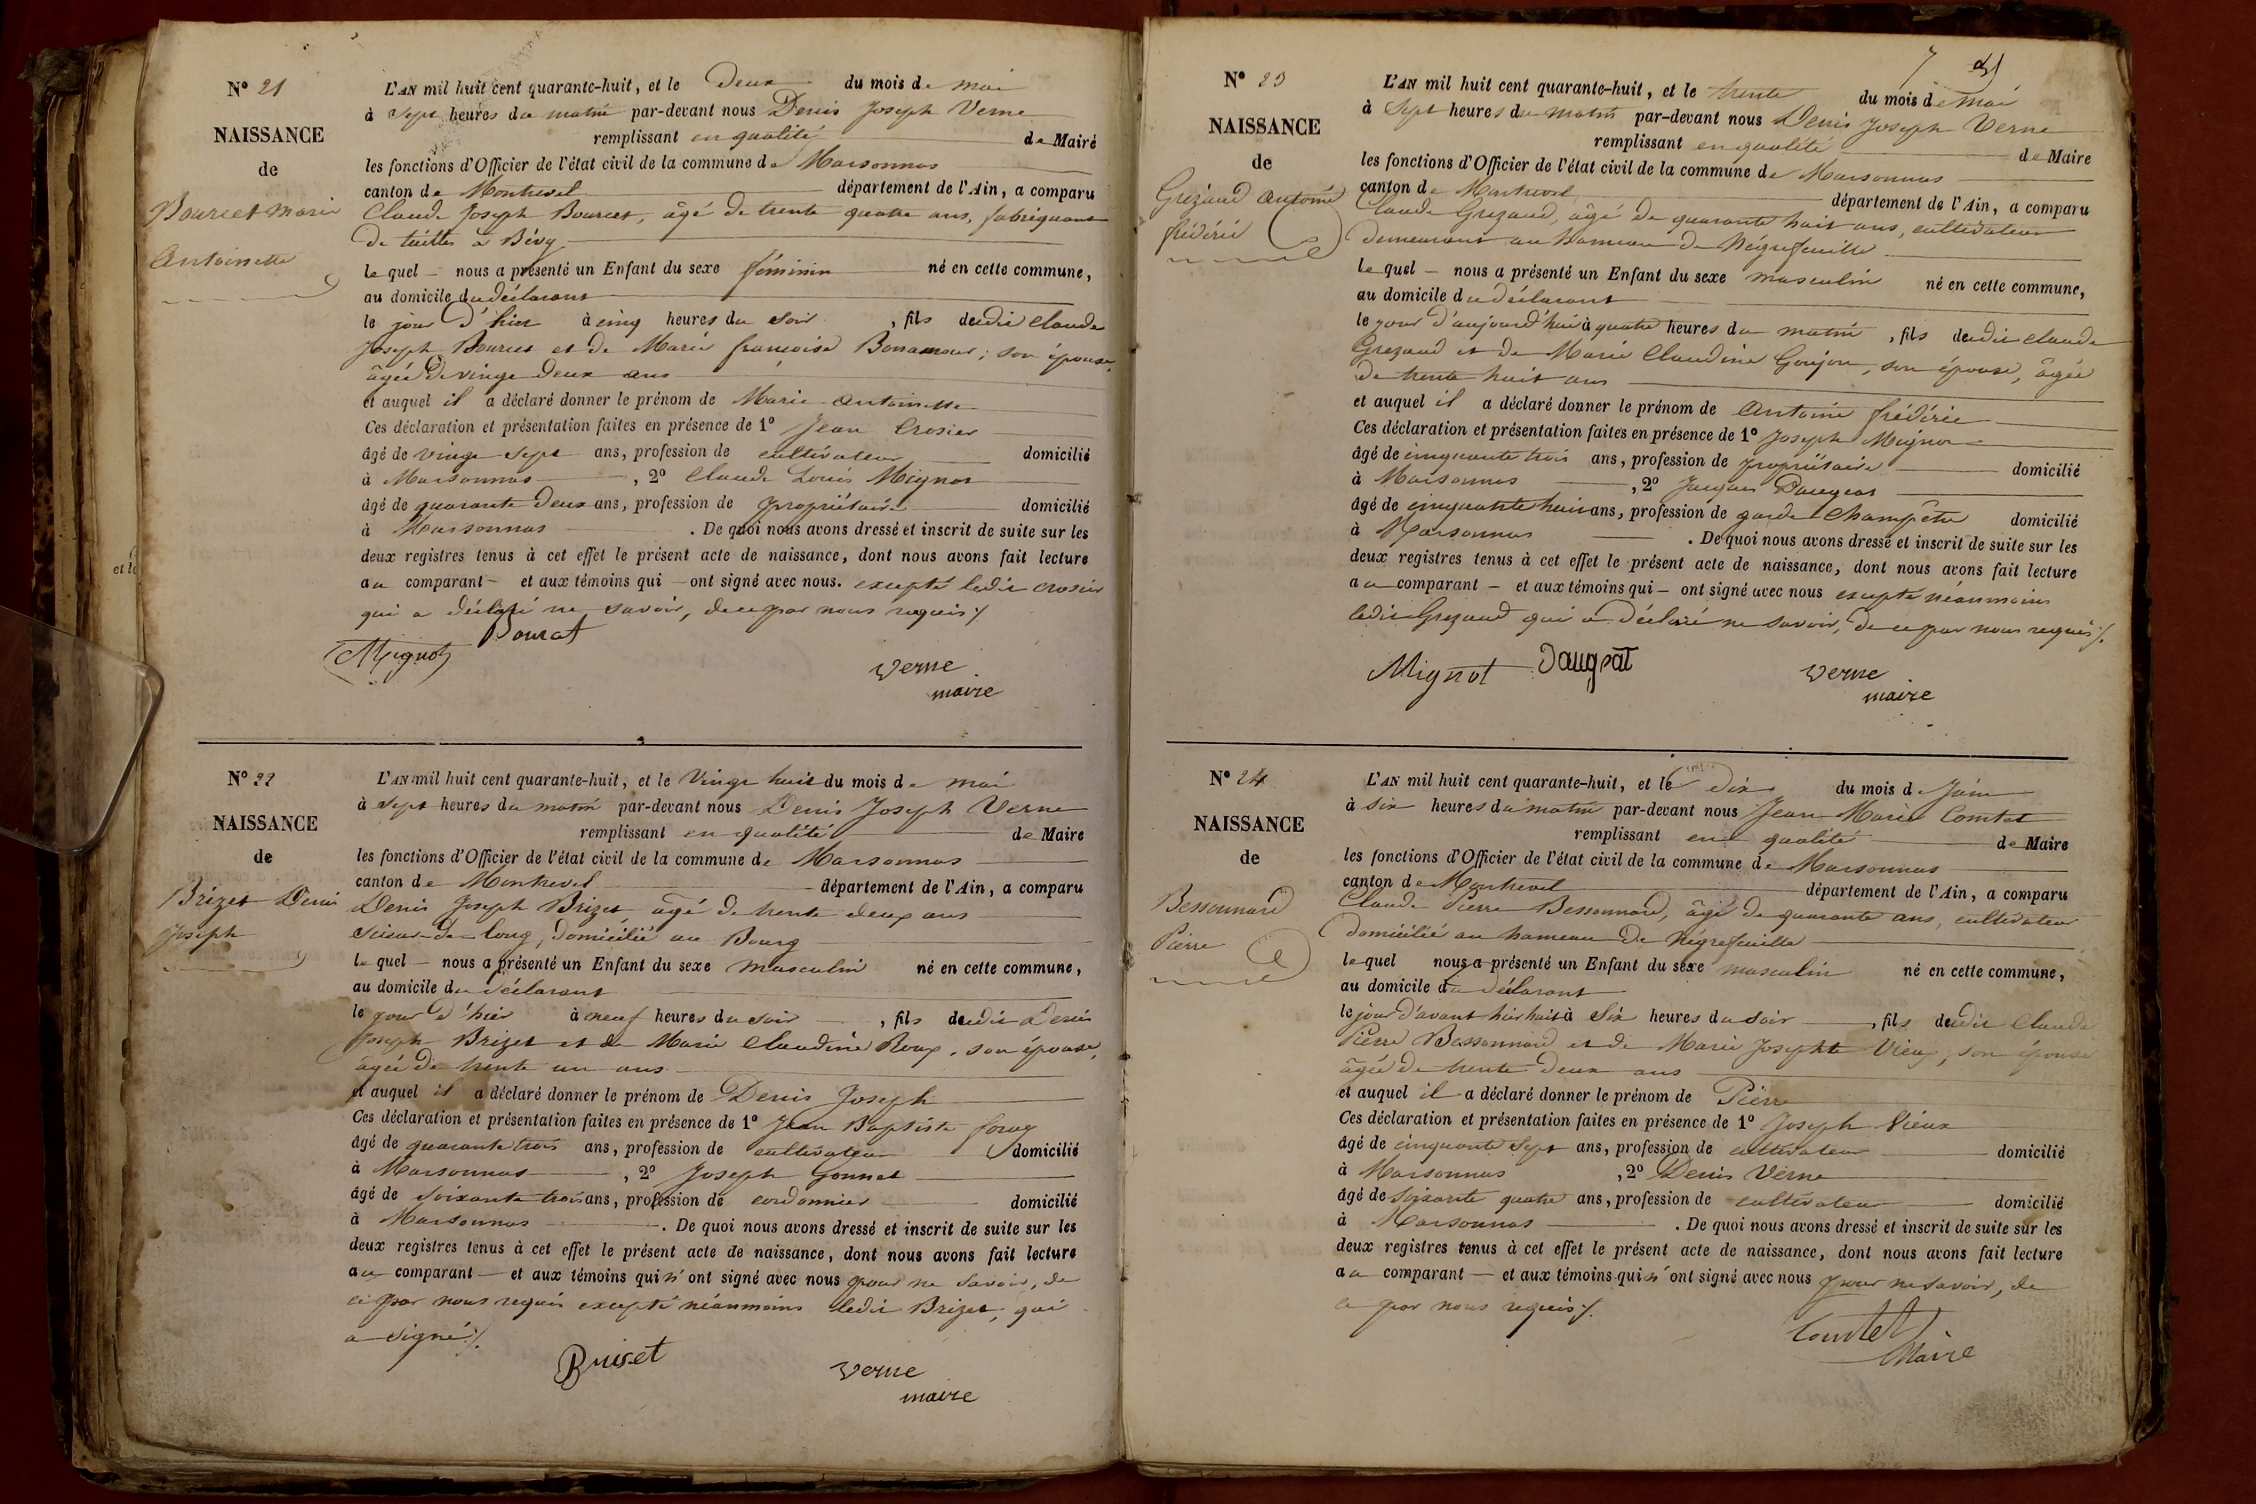 N° 21
NAISSANCE
de
Bourcet Marie
Antoinette
L'AN mil huit cent quarante-huit, et le deux du mois de mai
à sept heures du matin par-devant nous Denis Joseph Verne
remplissant en qualité de Maire
les fonctions d'Officier de l'état civil de la commune de Marsonnas
canton de Montrevel département de l'Ain, a comparu
Claude Joseph Bourcet, âgé de trente quatre ans, fabriquant
de tuilles à Bévy
lequel nous a présenté un Enfant du sexe féminin né en cette commune,
au domicile du déclarant
le jour d'hier à cinq heures du soir, fils dudit Claude
Joseph Bourcet et de Marie françoise Bonamour, son épouse,
âgée de vingt deux ans
et auquel il a déclaré donner le prénom de Marie Antoinette
Ces déclaration et présentation faites en présence de 1° Jean Crosier
âgé de vingt sept ans, profession de cultivateur domicilié
à Marsonnas, 2° Claude Louis Mignot
âgé de quarante deux ans, profession de propriétaire domicilié
à Marsonnas. De quoi nous avons dressé et inscrit de suite sur les
deux registres tenus à cet effet le présent acte de naissance, dont nous avons fait lecture
au comparant et aux témoins qui ont signé avec nous. excepté ledit Crosier
qui a déclaré ne savoir, de ce par nous requis ./.
Mignot Bourcet
verne
maire
N° 22
NAISSANCE
de
Brizet Denis
Joseph
L'AN mil huit cent quarante-huit, et le vingt huit du mois de mai
à sept heures du matin par-devant nous Denis Joseph Verne
remplissant en qualité de Maire
les fonctions d'Officier de l'état civil de la commune de Marsonnas
canton de Montrevel département de l'Ain, a comparu
Denis Joseph Brizet âgé de trente deux ans
scieur de long, domicilié au Bourg
lequel nous a présenté un Enfant du sexe masculin né en cette commune,
au domicile du déclarant
le jour d'hier à neuf heures du soir, fils dudit Denis
Joseph Brizet et de Marie Claudine Roux, son épouse,
âgée de trente un ans
et auquel il a déclaré donner le prénom de Denis Joseph
Ces déclaration et présentation faites en présence de 1° Jean Baptiste
âgé de quarante trois ans, profession de cultivateur domicilié
à Marsonnas, 2° Joseph Gonnet
âgé de soixante trois ans, profession de cordonnier domicilié
à Marsonnas. De quoi nous avons dressé et inscrit de suite sur les
deux registres tenus à cet effet le présent acte de naissance, dont nous avons fait lecture
au comparant et aux témoins qui n'ont signé avec nous pour ne savoir, de
ce par nous requis excepté néanmoins ledit Brizet, qui
a signé ./.
Briset
verne
maire
7
N° 23
NAISSANCE
de
Grezaud Antoine
frédéric
L'AN mil huit cent quarante-huit, et le trente du mois de mai
à sept heures du matin par-devant nous Denis Joseph Verne
remplissant en qualité de Maire
les fonctions d'Officier de l'état civil de la commune de Marsonnas
canton de Montrevel département de l'Ain, a comparu
Claude Grezaud, âgé de quarante huit ans, cultivateur
demeurant au hameau de Négrefeuille
lequel nous a présenté un Enfant du sexe masculin né en cette commune,
au domicile du déclarant
le jour d'aujourd'hui à quatre heures du matin, fils dudit Claude
Grezaud et de Marie Claudine Goujon, son épouse, âgée
de trente huit ans
et auquel il a déclaré donner le prénom de Antoine frédéric
Ces déclaration et présentation faites en présence de 1° Joseph Mignot
âgé de cinquante trois ans, profession de propriétaire domicilié
à Marsonnas, 2° Jacques Daugeat
âgé de cinquante huit ans, profession de garde champêtre domicilié
à Marsonnas. De quoi nous avons dressé et inscrit de suite sur les
deux registres tenus à cet effet le présent acte de naissance, dont nous avons fait lecture
au comparant et aux témoins qui ont signé avec nous excepté néanmoins
ledit Grezaud qui a déclaré ne savoir, de ce par nous requis ./.
Mignot Daugeat
verne
maire
N° 24
NAISSANCE
de
Bessonnard
Pierre
L'AN mil huit cent quarante-huit, et le dix du mois de Juin
à six heures du matin par-devant nous Jean Marie Comtet
remplissant en qualité de Maire
les fonctions d'Officier de l'état civil de la commune de Marsonnas
canton de Montrevel département de l'Ain, a comparu
Claude Pierre Bessonnard, âgé de quarante ans, cultivateur
domicilié au hameau de Négrefeuille
lequel nous a présenté un Enfant du sexe masculin né en cette commune,
au domicile du déclarant
le jour d'avant hier huit à six heures du soir, fils dudit Claude
Pierre Bessonnard et de Marie Josephte Vieux, son épouse
âgée de trente deux ans
et auquel il a déclaré donner le prénom de Pierre
Ces déclaration et présentation faites en présence de 1° Joseph Vieux
âgé de cinquante sept ans, profession de cultivateur domicilié
à Marsonnas, 2° Denis Verne
âgé de soixante quatre ans, profession de cultivateur domicilié
à Marsonnas. De quoi nous avons dressé et inscrit de suite sur les
deux registres tenus à cet effet le présent acte de naissance, dont nous avons fait lecture
au comparant et aux témoins qui n'ont signé avec nous pour ne savoir, de
ce par nous requis ./.
Comtet
Maire